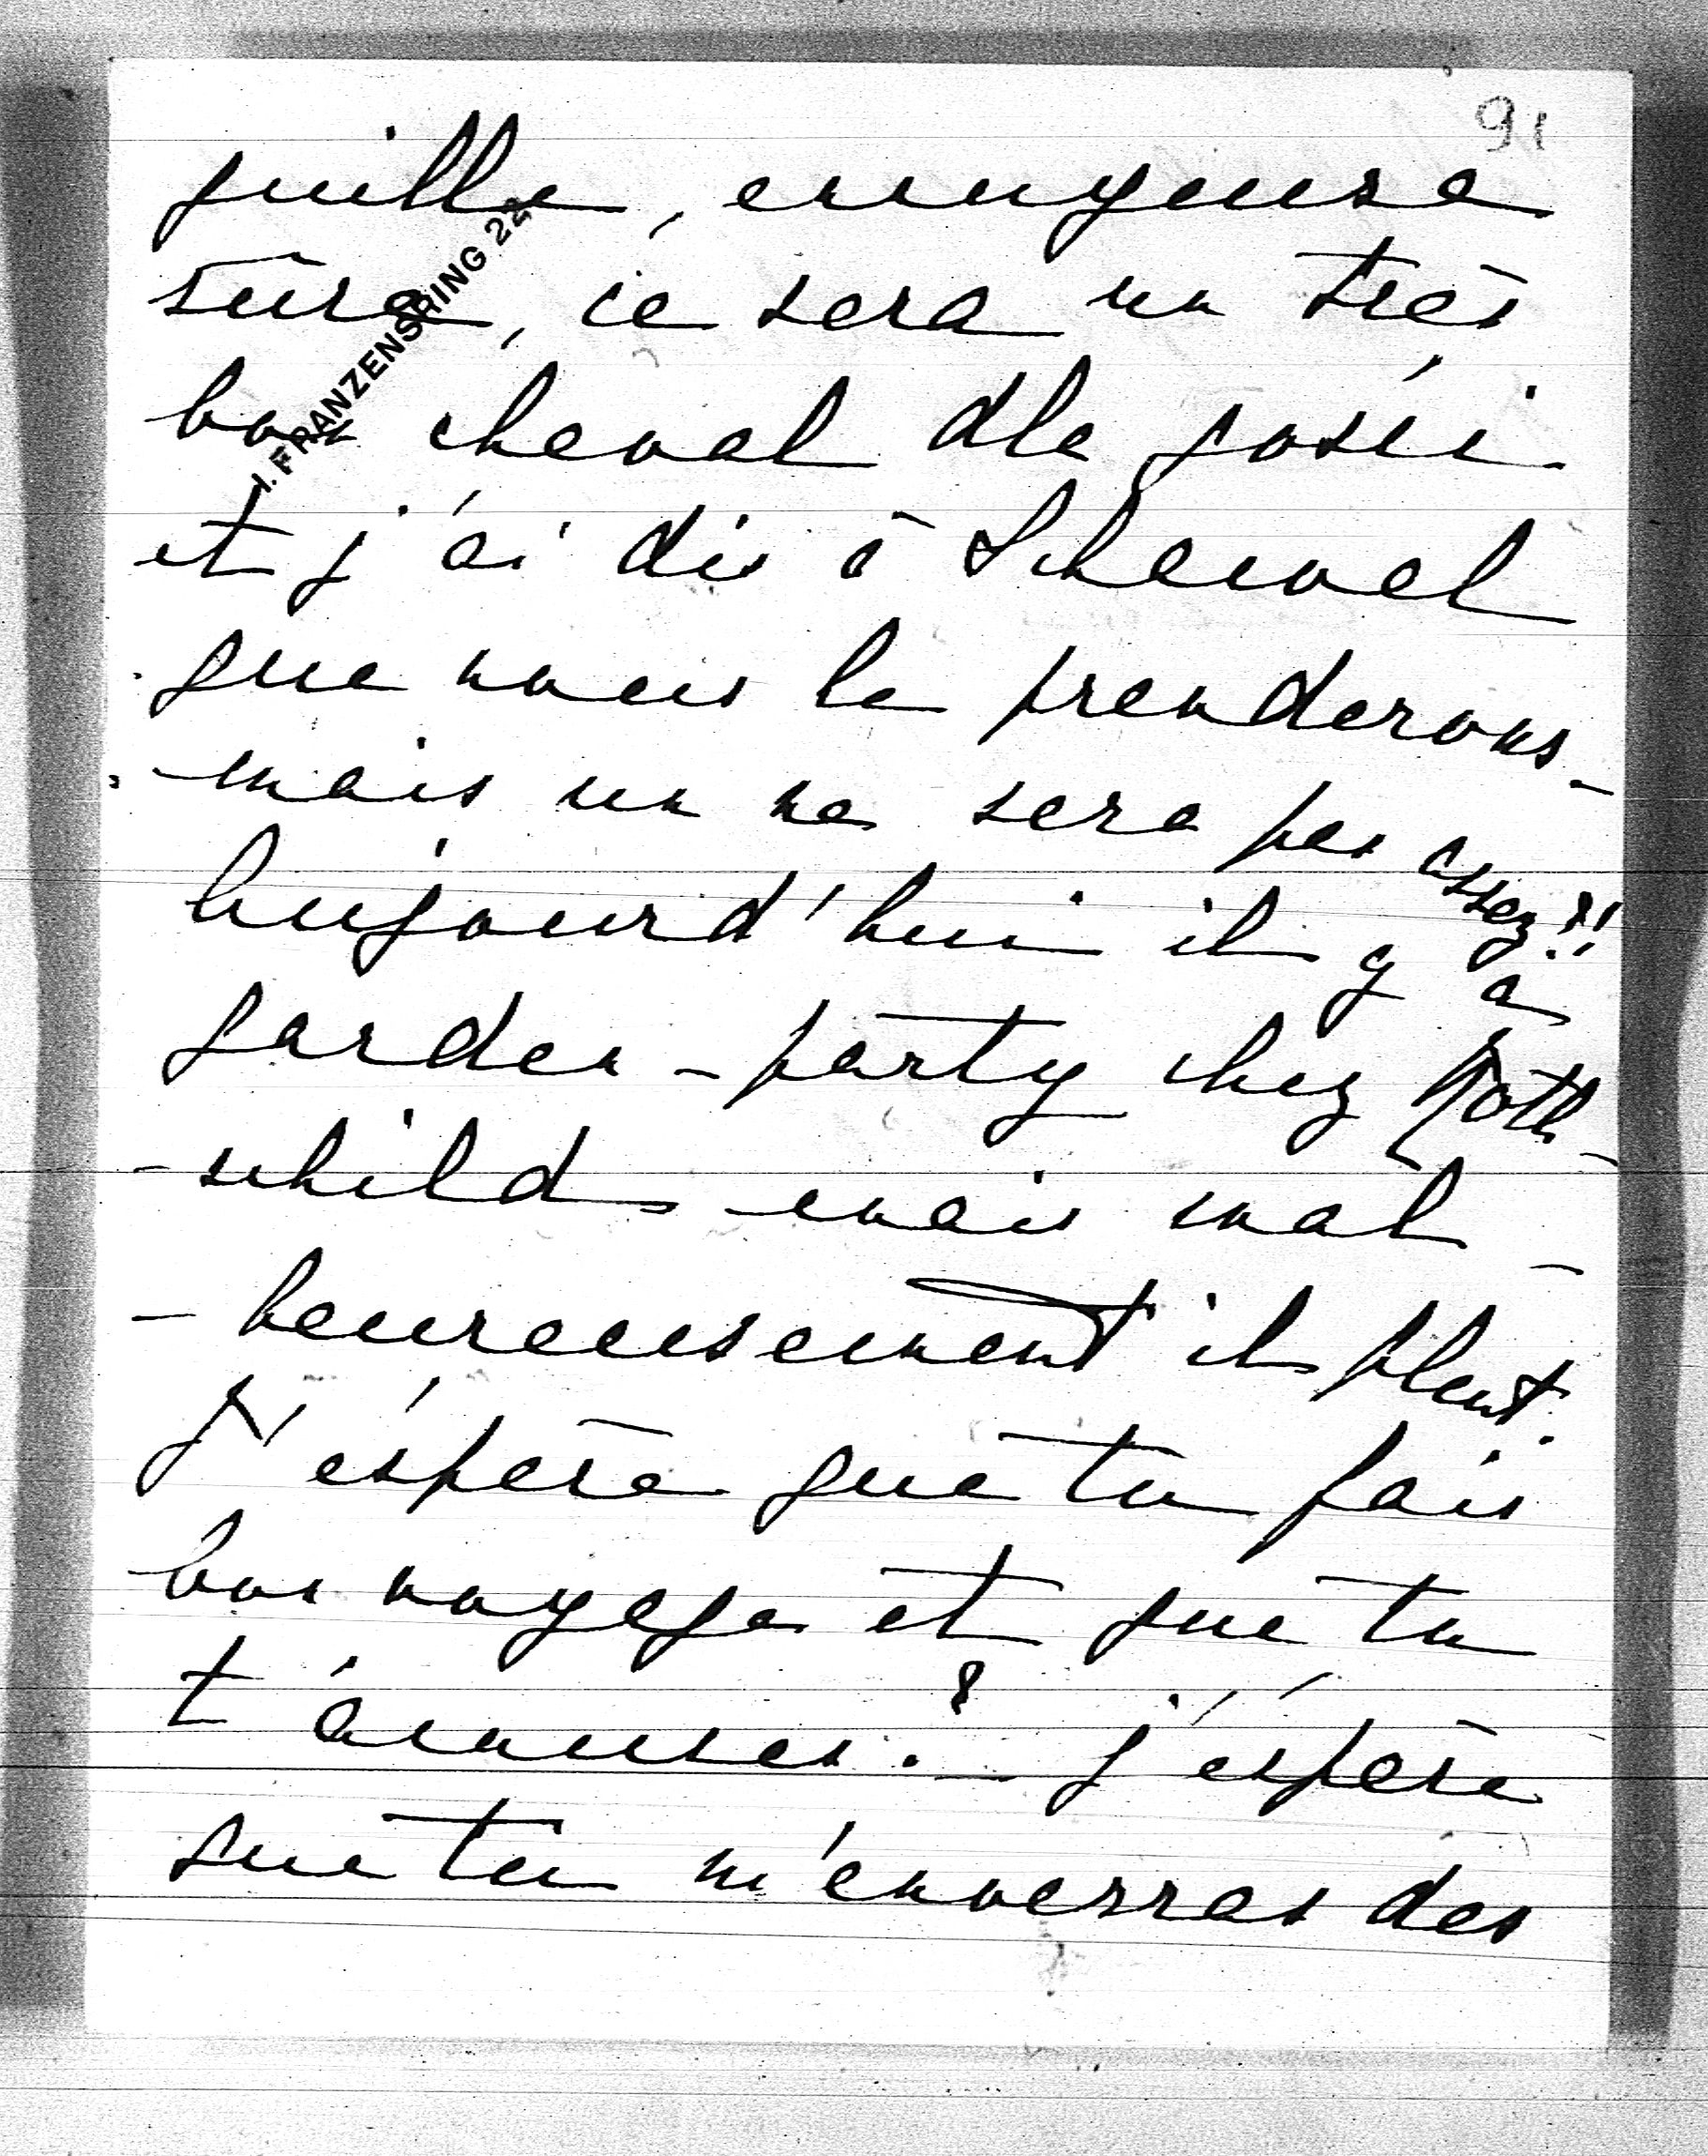 91
I. FRANZENSRING 22
quille, ennuyeuse
sûre, ce sera un très
bon cheval
et j'ai dis à
que nous le prenderons -
mais un ne sera pas assez?!
Aujourd'hui il y a
garden-party chez Roth-
-schild mais mal-
-heureusement il pleut.
J'éspère que tu fais
bon voyage et que tu
t'amuses? - j'éspère
que tu m'enverras des